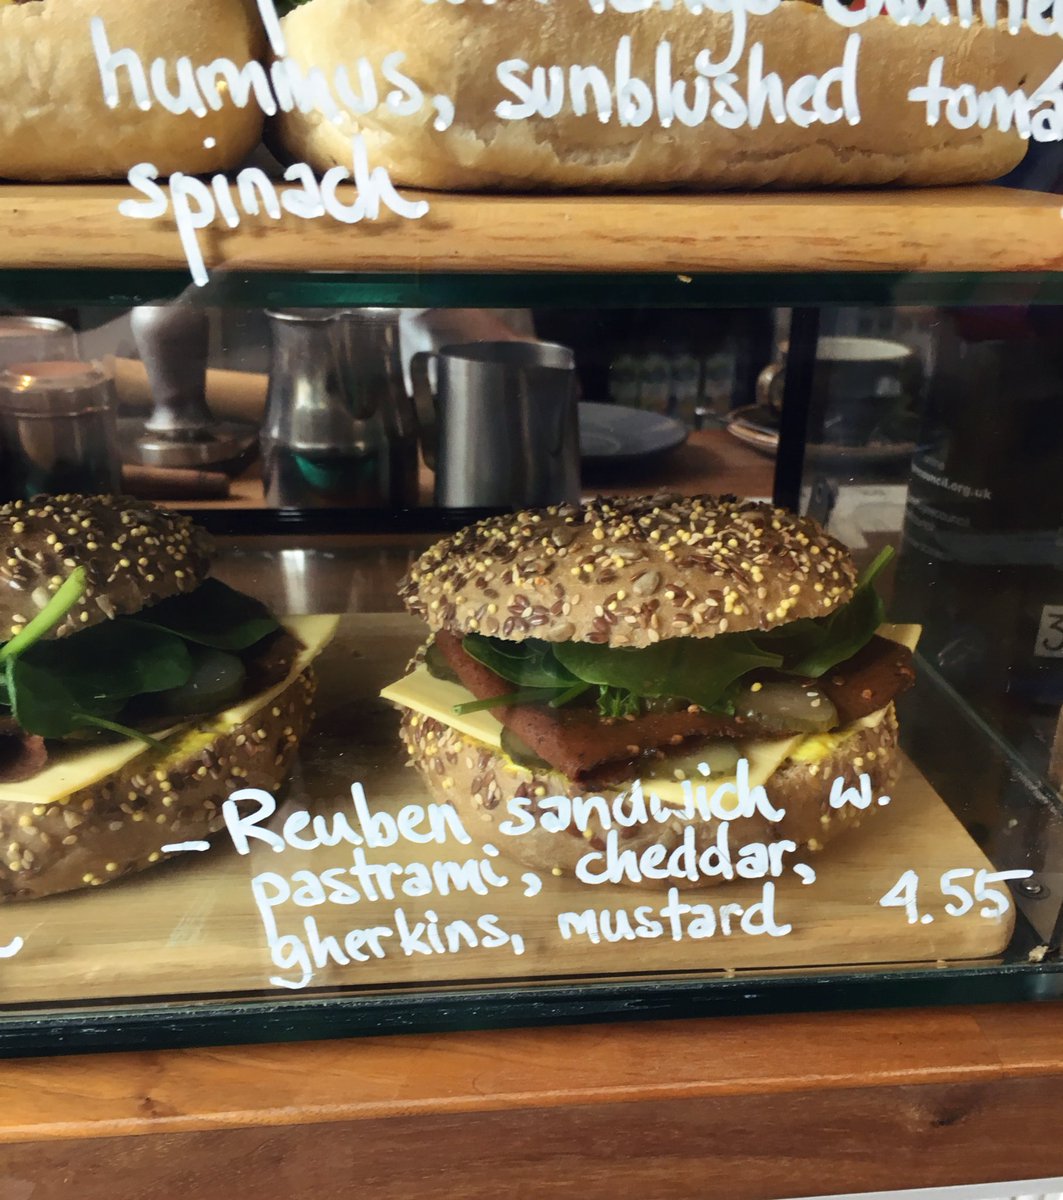 hummus, sunblushed
spinach
ouncil.org.uk
– Reuben sandwich w.
pastrami, cheddar,
gherkins, mustard 4.55